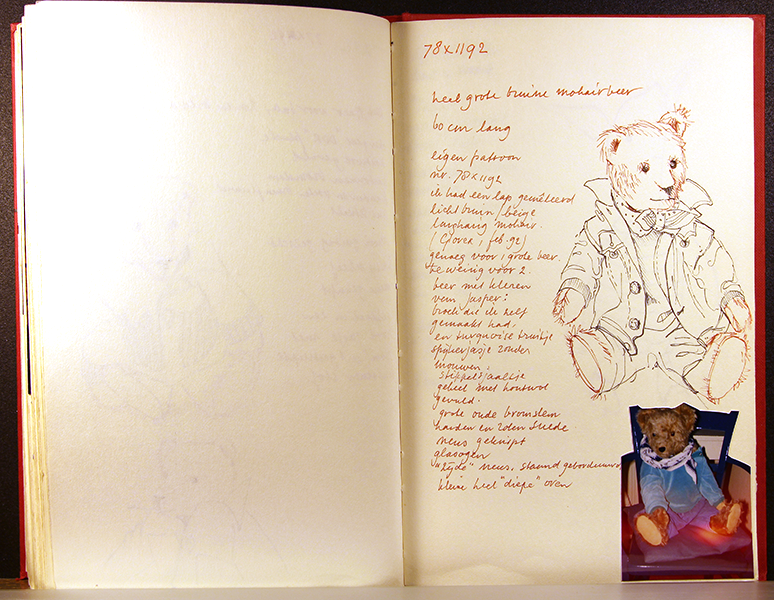 78x1192
heel grote bruine mohairbeer
60 cm lang
eigen patroon
nr. 78x1192
ik had een lap gemêleerd
licht bruin/beige
langharig mohair.
feb. 92)
genoeg voor 1 grote beer.
te weinig voor 2.
beer met kleren
van Jasper:
broek die ik zelf
gemaakt had,
en turquoise truitje
spijkerjasje zonder
mouwen.
stippelsjaaltje
geheel met houtwol
gevuld.
grote oude bromstem
handen en zolen suède
neus geknipt
glasogen
"zijde" neus, staand geborduurd
kleine heel "diepe" oren